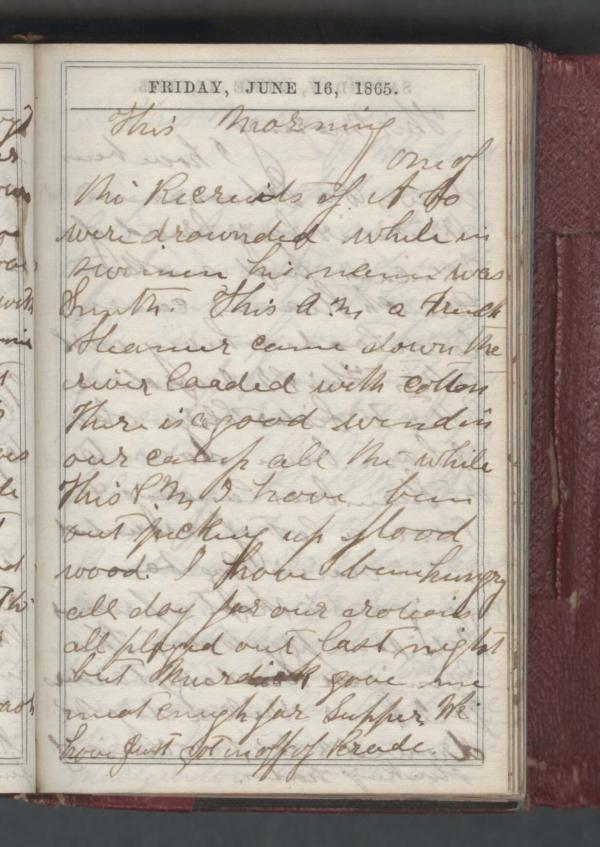 FRIDAY, JUNE 16, 1865.
This Morning
one of
the Recruits of A Co
were drownded while in
swimen his name was
Smith. This A.M a
steamer came down the
river loaded with cotton
There is a good wind in
our camp all the while
This P M I have bin
out picking up flood
wood. I have bin hungry
all day for our
all played out last night
but Murdick gave me
meat enugh for Supper We
have Just got in off of Prade.